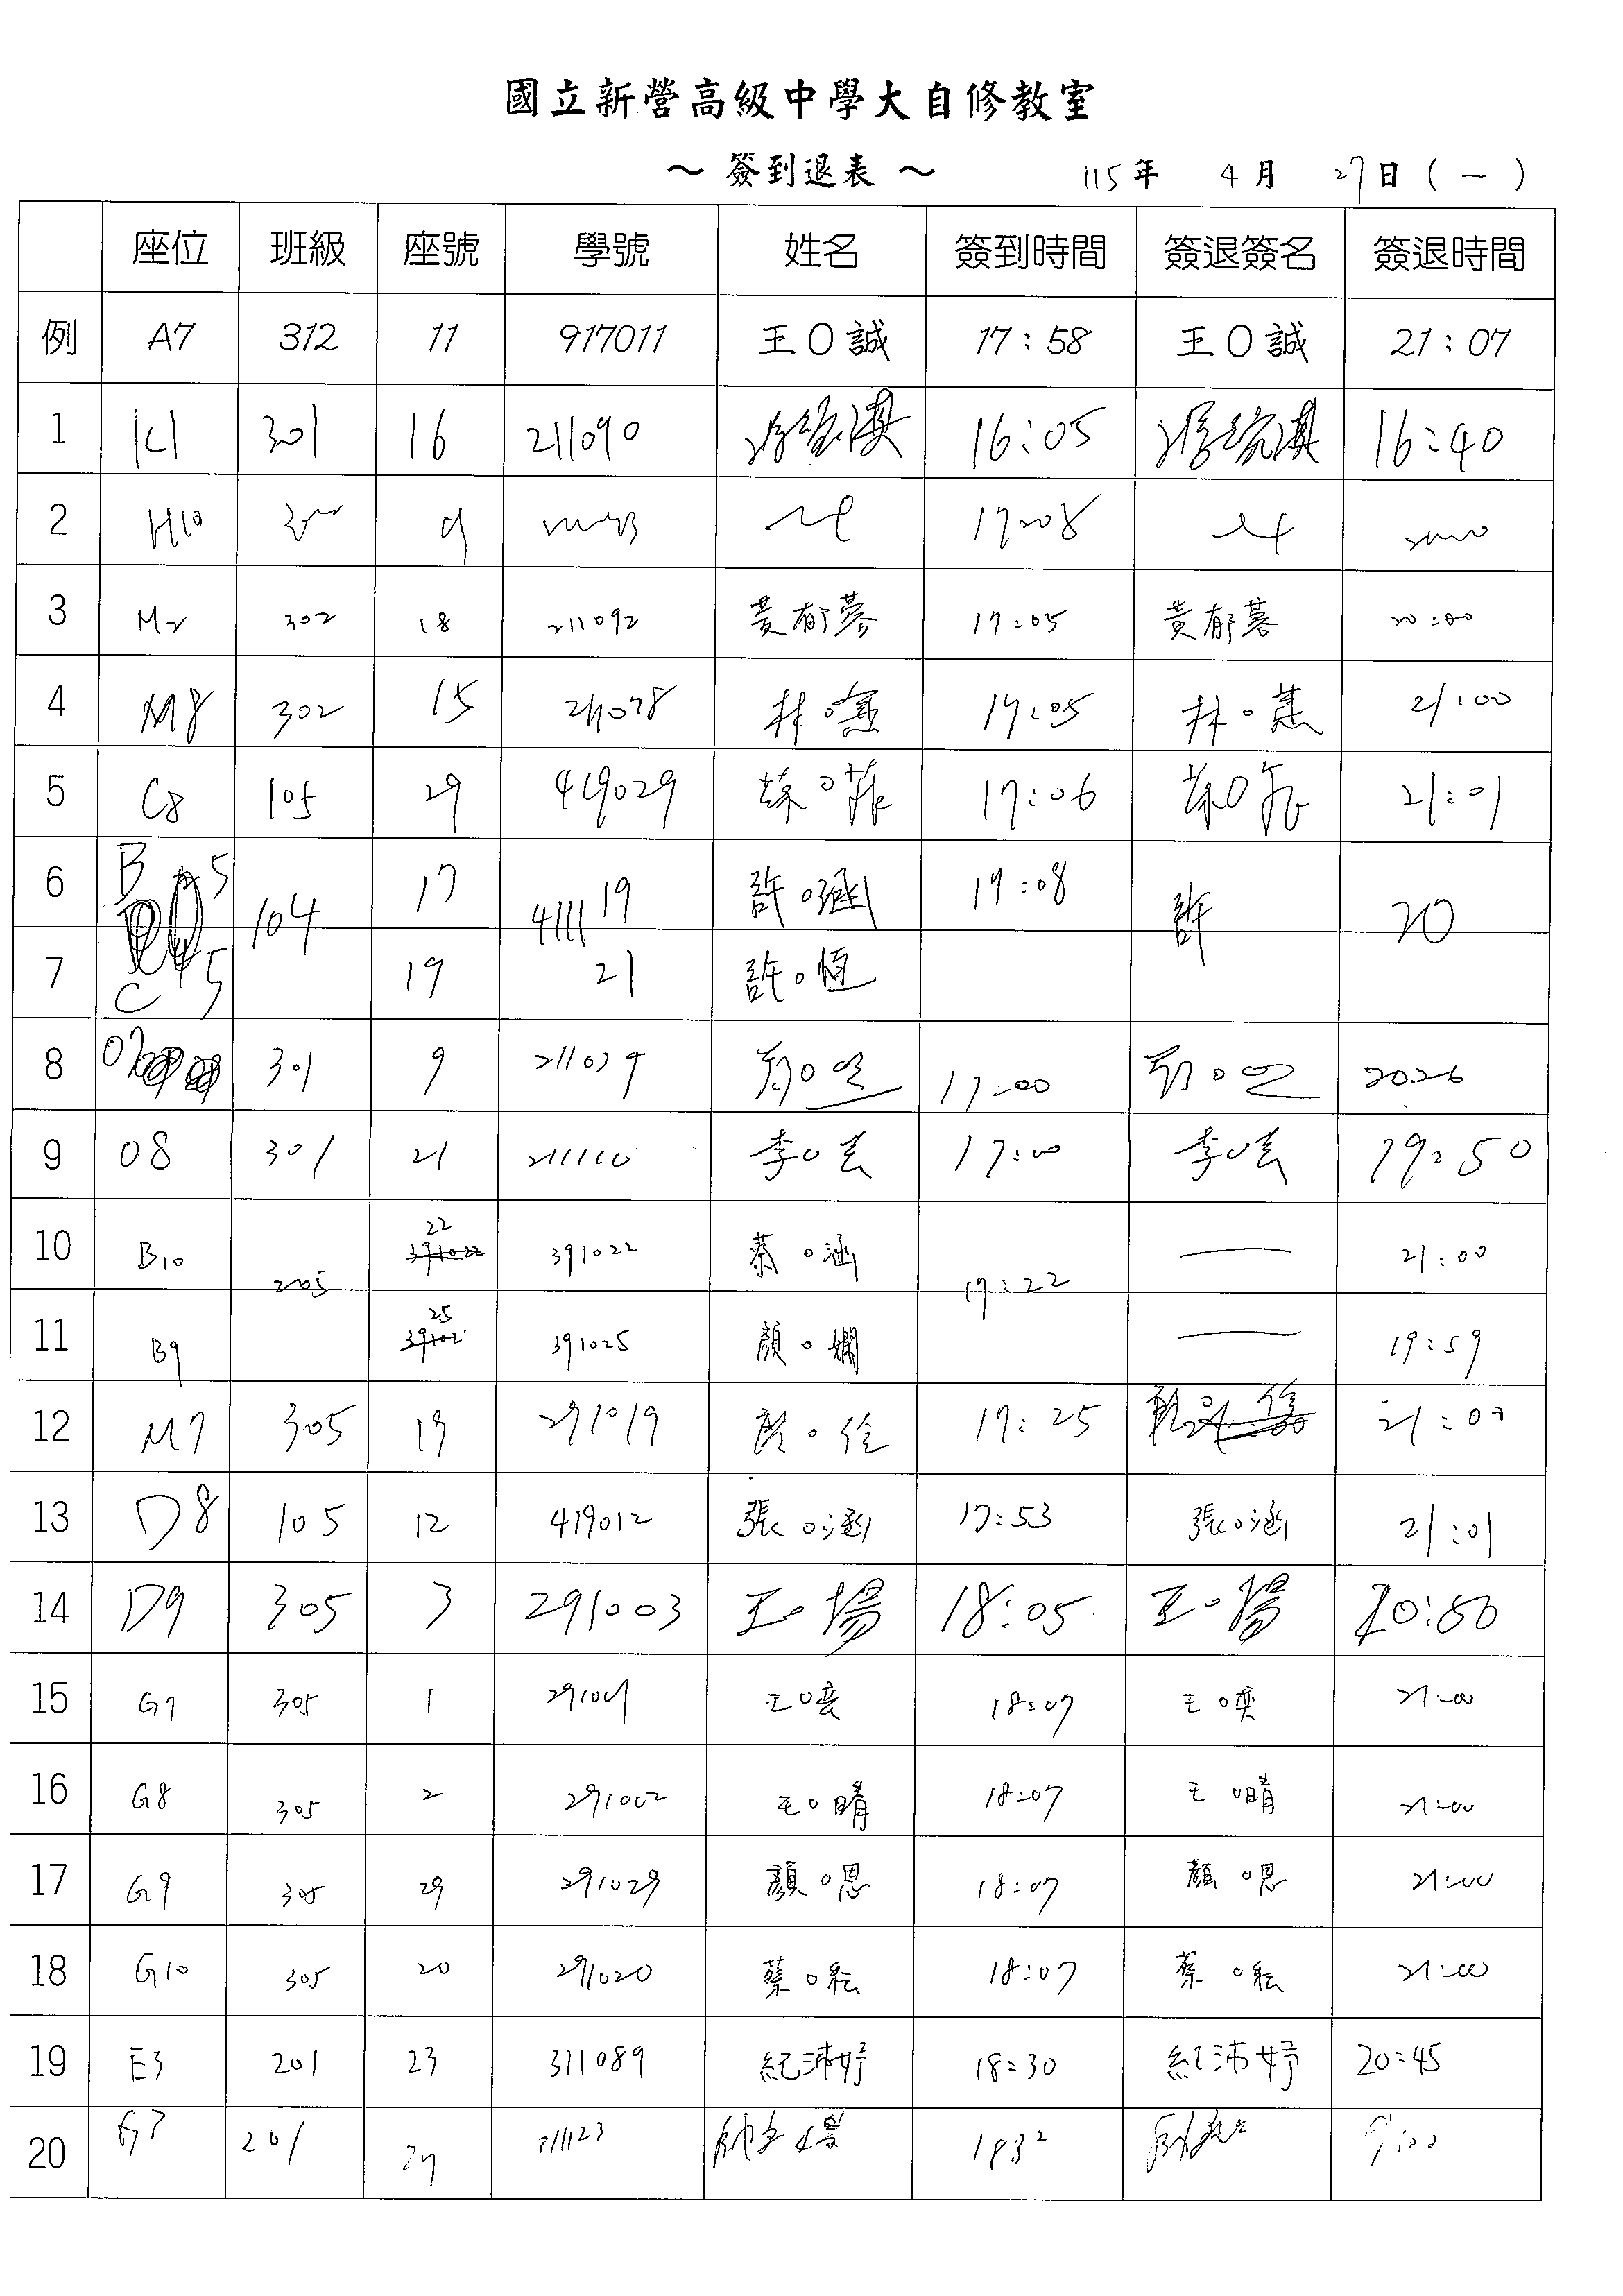 國立新營高級中學大自修教室
～ 簽到退表 ～ 115年 4月 27日 ( 一 )
座位 班級 座號 學號 姓名 簽到時間 簽退簽名 簽退時間
例 A7 312 11 917011 王〇誠 17:58 王〇誠 21:07
1 K1 301 16 211090 16:05 16:40
2 H10 9 17:08
3 M2 302 18 211092 黃郁蓉 17:05 黃郁蓉 20:00
4 M8 302 15 211078 林〇蕙 17:05 林〇蕙 21:00
5 C8 105 29 419029 17:06 21:01
6 B5 104 17 411119 許〇涵 17:08 許 20
7 C5 19 21 許〇恆
8 07 301 9 211039 17:00 20:26
9 08 301 21 211110 李〇 17:00 李〇 19:50
10 B10 205 22 391022 蔡〇涵 17:22 21:00
11 B9 25 391025 顏〇嫻 19:59
12 M7 305 19 291019 17:25 21:00
13 D8 105 12 419012 張〇涵 17:53 張〇涵 21:01
14 D9 305 3 291003 王〇揚 18:05 王〇揚 20:50
15 G7 305 1 291001 王〇奕 18:07 王〇奕 21:00
16 G8 305 2 291002 王〇晴 18:07 王〇晴 21:00
17 G9 305 29 291029 顏〇恩 18:07 顏〇恩 21:00
18 G10 305 20 291020 蔡〇耘 18:07 蔡〇耘 21:00
19 E3 201 23 311089 紀沛妤 18:30 紀沛妤 20:45
20 G3 201 29 311123 1832 9:00